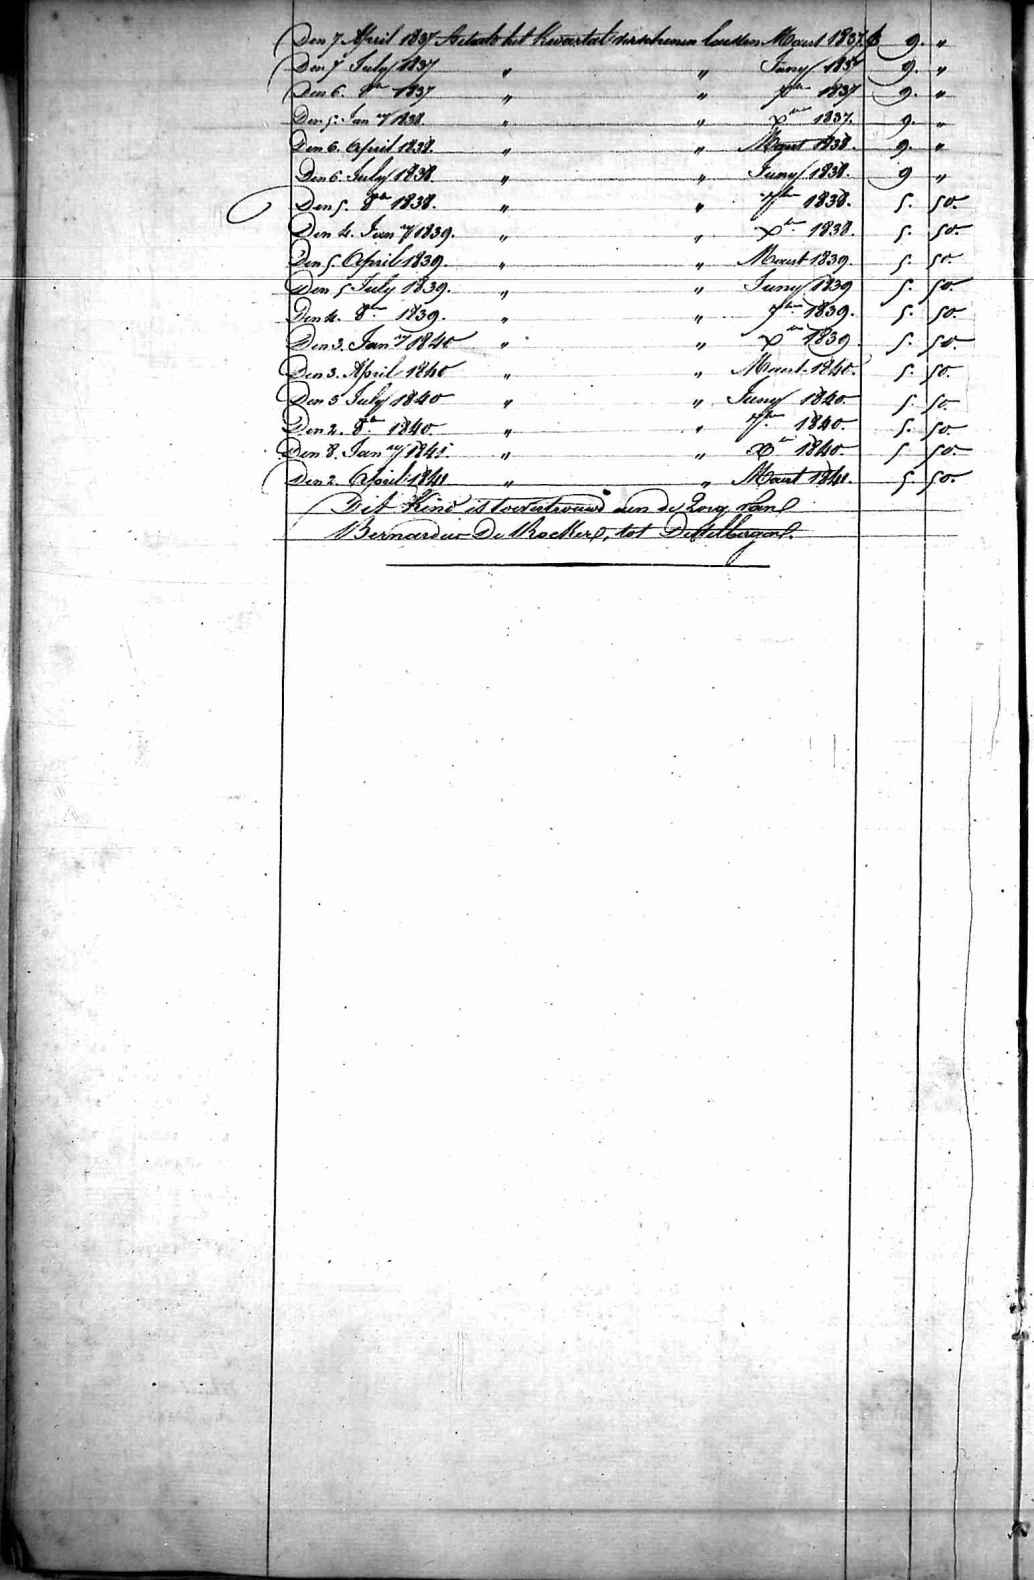 Den 7 April 1837 betaelt het kwartael verschenen lesten Maert 1837 f 9. "
Den 7 July 1837 " " Juny 1837 9. "
Den 6. 8re 1837 " " 7ber 1837 9. "
Den 5. Jan ry 1838. " " Xber 1837. 9. "
Den 6. April 1838. " " Maert 1838. 9. "
Den 6. July 1838 " " Juny 1838. 9 "
Den 5. 8re 1838. " " 7ber 1838. 5. 50.
Den 4. Jan ry 1839. " " Xber 1838. 5. 50.
Den 5. April 1839. " " Maert 1839. 5. 50
Den 5 July 1839. " " Juny 1839 5. 50
Den 4. 8re 1839. " " 7ber 1839. 5. 50.
Den 3. Jan ry 1840 " " Xber 1839. 5. 50.
Den 3. April 1840 " " Maert 1840. 5. 50.
Den 3 July 1840 " " Juny 1840 5. 50.
Den 2. 8re 1840. " " 7ber 1840. 5. 50
Den 8. Jan ry 1841. " " Xber 1840. 5 50.
Den 2. April 1841 " " Maert 1841. 5 50.
Dit Kind is toevertrouwd aen de zorg van
Bernardus De Backer, tot Destelbergen.